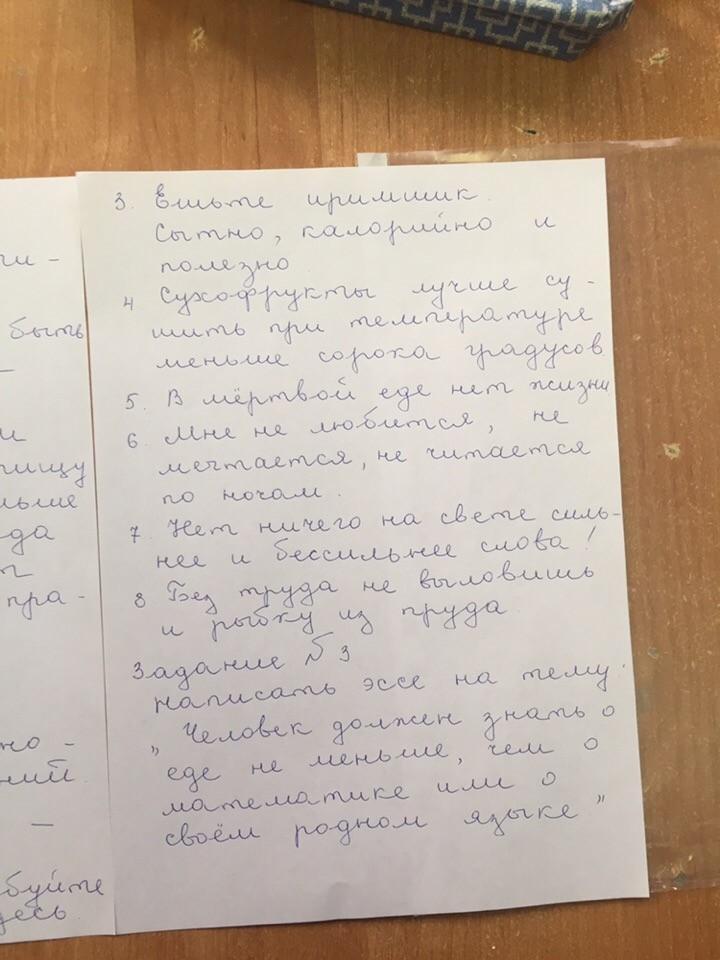 ги -
быть
–
и
пищу
льше
да
т
пра -
но -
ний.
–
буйте
десь
3. Ешьте иримшик.
Сытно, калорийно и
полезно
4 Сухофрукты лучше су -
шить при температуре
меньше сорока градусов
5. В мёртвой еде нет жизни
6. Мне не любится, не
мечтается, не читается
по ночам.
7. Нет ничего на свете силь-
нее и бессильнее слова!
8 Без труда не выловишь
и рыбку из пруда.
Задание № 3
Написать эссе на тему:
„Человек должен знать о
еде не меньше, чем о
математике или о
своём родном языке”